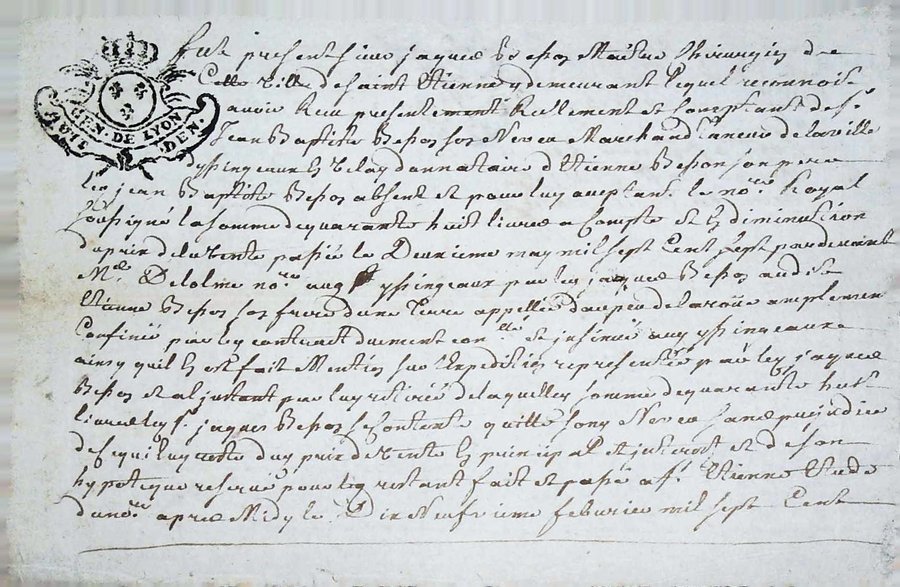 GEN. DE LYON
DEN.
fut present sieur jaques Besson Maitre Chirurgien de
Cette ville de saint Etienne y demeurant lequel reconnoit
avoir Receu presentement Reellement et Comptant de sr.
Jean Baptiste Besson son Neveu Marchand de la ville
dyssingeaux donnataire d'Etienne Besson son pere
led jean Baptiste Besson absent et pour luy aceptant le nore. Royal
soussigné la somme de quarante huit livres a Compte et En diminution
du prix de la vente passée le Deuxieme may mil sept Cent sept pardevant
Me. Delolme nore. aud yssingeaux par led jaques Besson aud
Etienne Besson son frere d'une Terre appellée amplement
Confinée par led contract duement con.lle et insinué aux yssingeaux
ainsy quil En est fait Mention sur l'Expedition representée par led jaques
Besson et a l'instant par luy retirée de laquelle somme de quarante huit
livres led sr. jaques Besson se Contente quitte son Neveu sans prejudice
de ce qui luy reste du prix de vente En principal et interest et de son
hypoteque reservé pour led restant fait et passé a st. Etienne Etude
du nore. apres Midy le Dix Neufvieme febvrier mil sept Cent